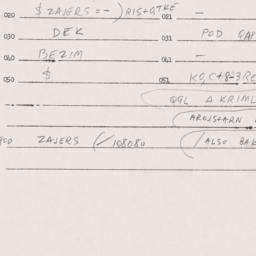 020 $ ZAJERS = -) RIS+G,TKE 021 -
030 DEK 031 POD GAP
040 BEZIM 041 -
050 $ 051 KG,C+8-3RE
GGL A KRIML
AROJS+ARN
900 ZAJERS (-108080 (ALSO BAK